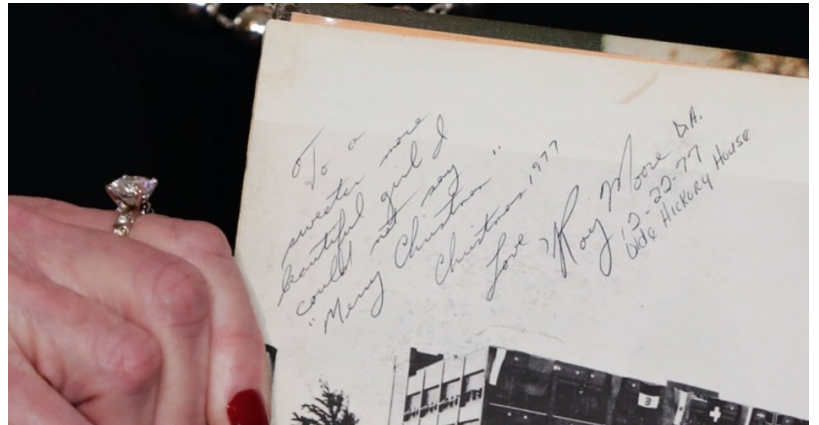 To a
sweeter more
beautiful girl I
could not say
"Merry Christmas"
Christmas 1977
Love
Roy Moore D.A.
12-22-77
Olde Hickory House